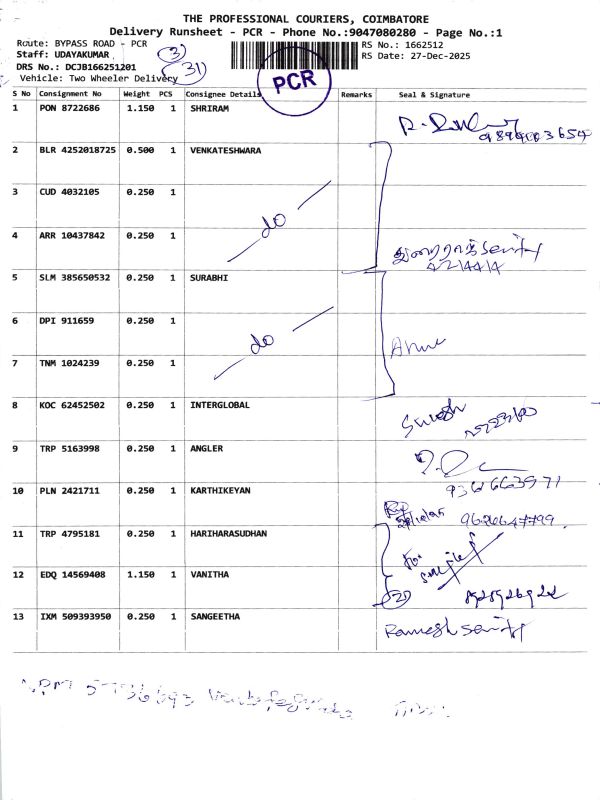 THE PROFESSIONAL COURIERS, COIMBATORE
Delivery Runsheet - PCR - Phone No.:9047080280 - Page No.:1
Route: BYPASS ROAD - PCR
RS No.: 1662512
Staff: UDAYAKUMAR
3
RS Date: 27-Dec-2025
DRS No.: DCJB166251201
31
Vehicle: Two Wheeler Delivery
PCR
S No Consignment No Weight PCS Consignee Details Remarks Seal & Signature
1 PON 8722686 1.150 1 SHRIRAM
2 BLR 4252018725 0.500 1 VENKATESHWARA
3 CUD 4032105 0.250 1
do
4 ARR 10437842 0.250 1
4214414
5 SLM 385650532 0.250 1 SURABHI
6 DPI 911659 0.250 1
do
7 TNM 1024239 0.250 1
8 KOC 62452502 0.250 1 INTERGLOBAL
Suresh
9 TRP 5163998 0.250 1 ANGLER
10 PLN 2421711 0.250 1 KARTHIKEYAN
9626647799
11 TRP 4795181 0.250 1 HARIHARASUDHAN
12 EDQ 14569408 1.150 1 VANITHA
13 IXM 509393950 0.250 1 SANGEETHA
Ramesh